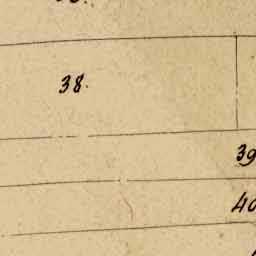 38.
39
40